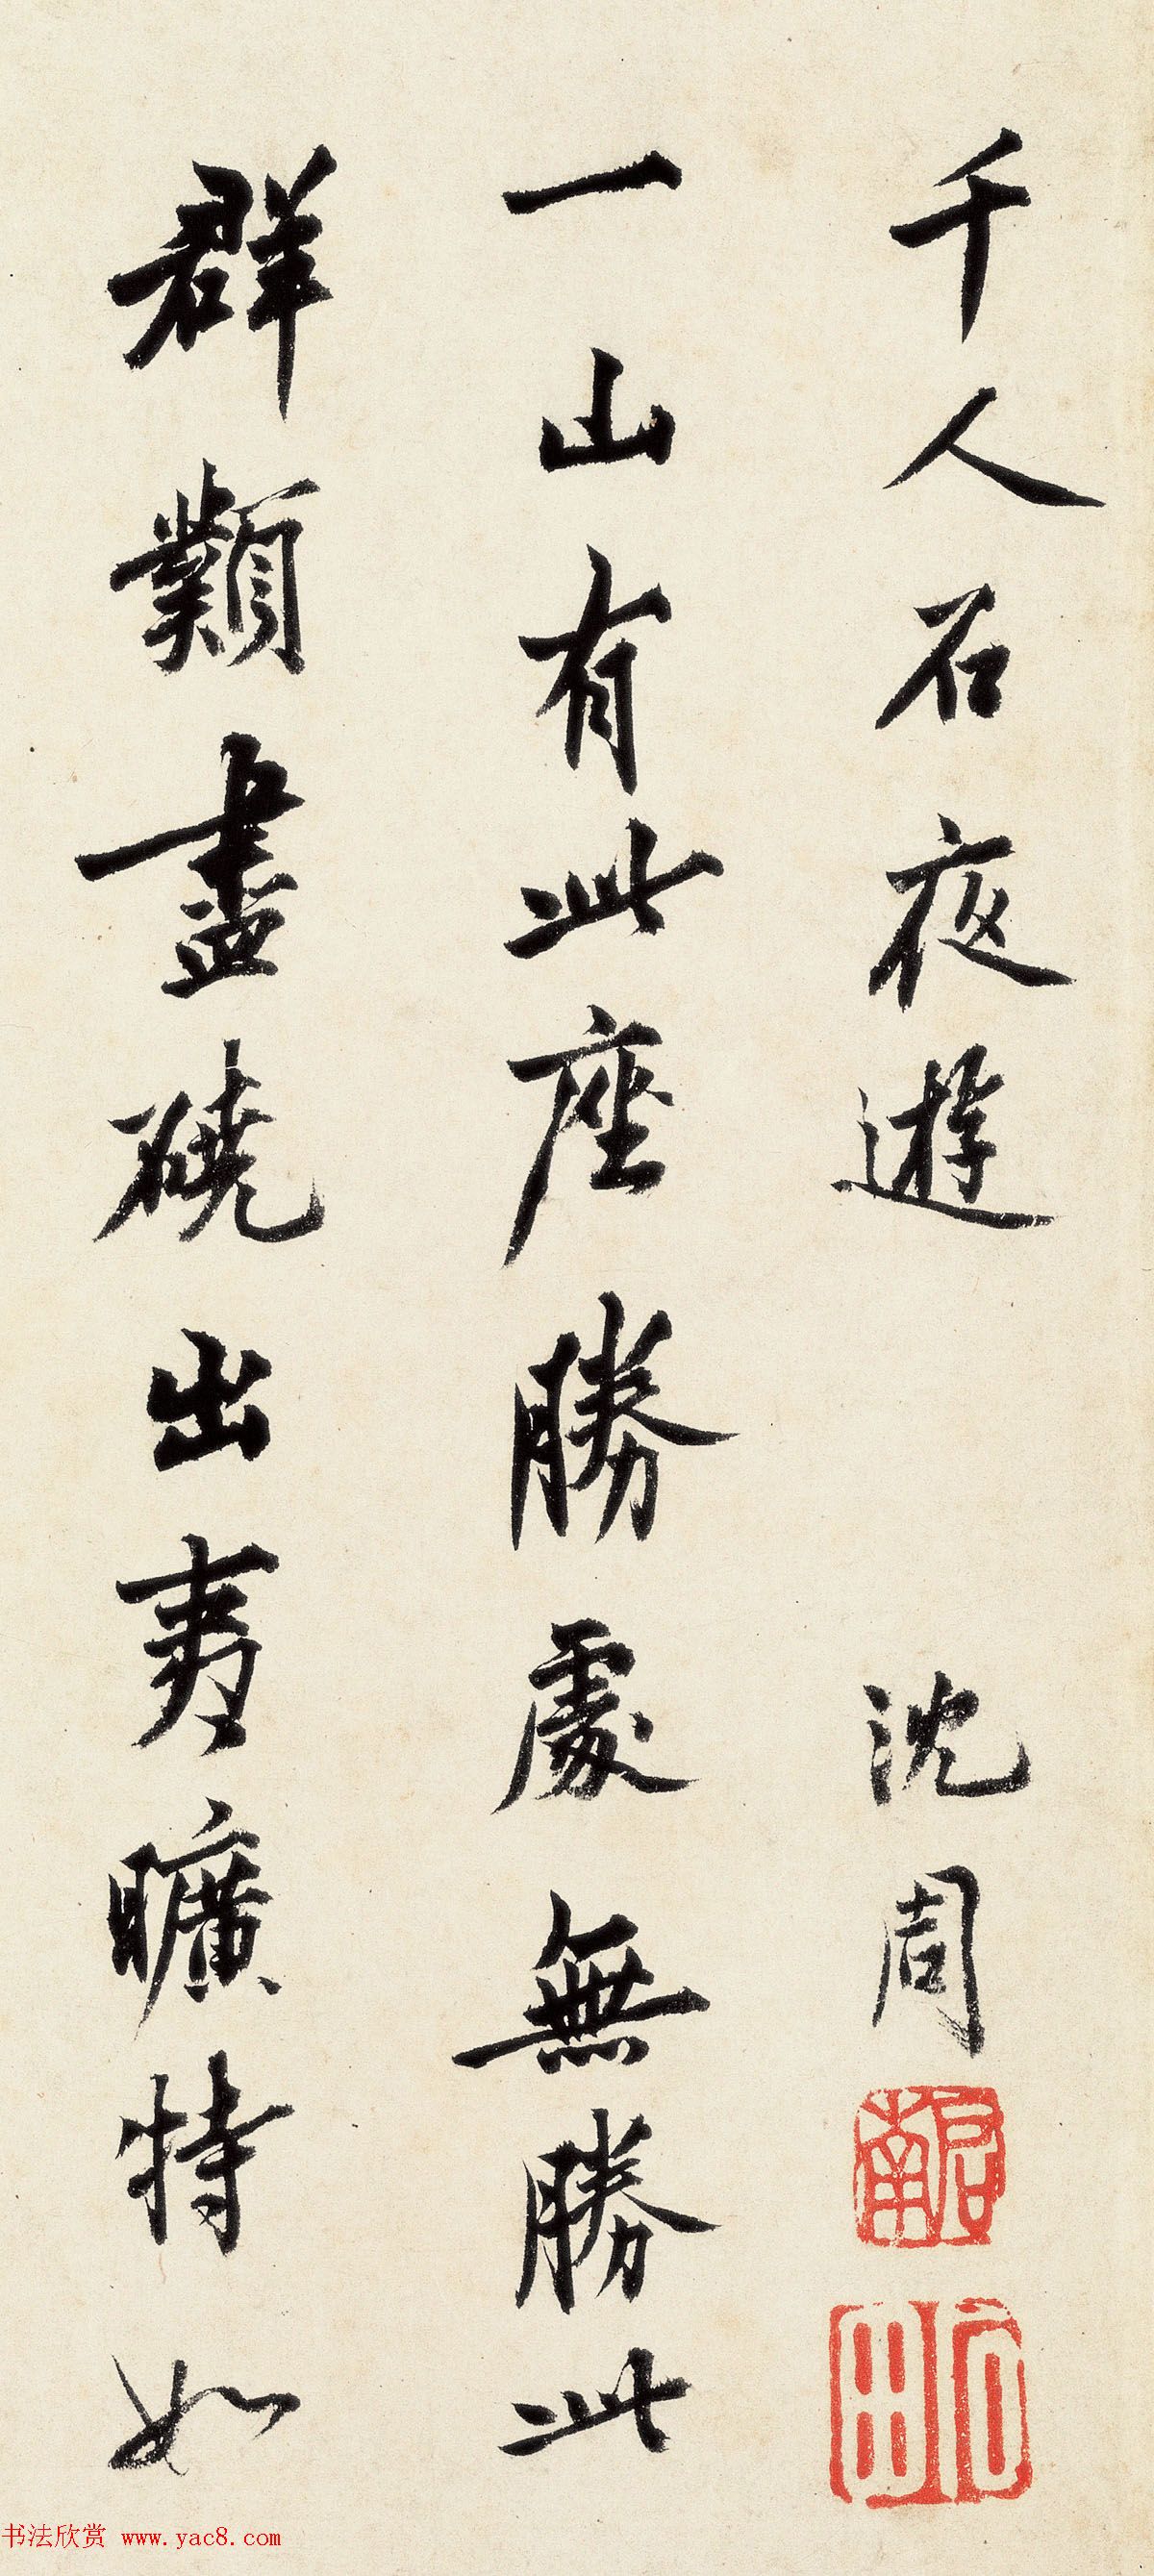 千人石夜遊 沈周
一山有此座勝處無勝此
群類盡磽出夷曠特如
书法欣赏 www.yac8.com